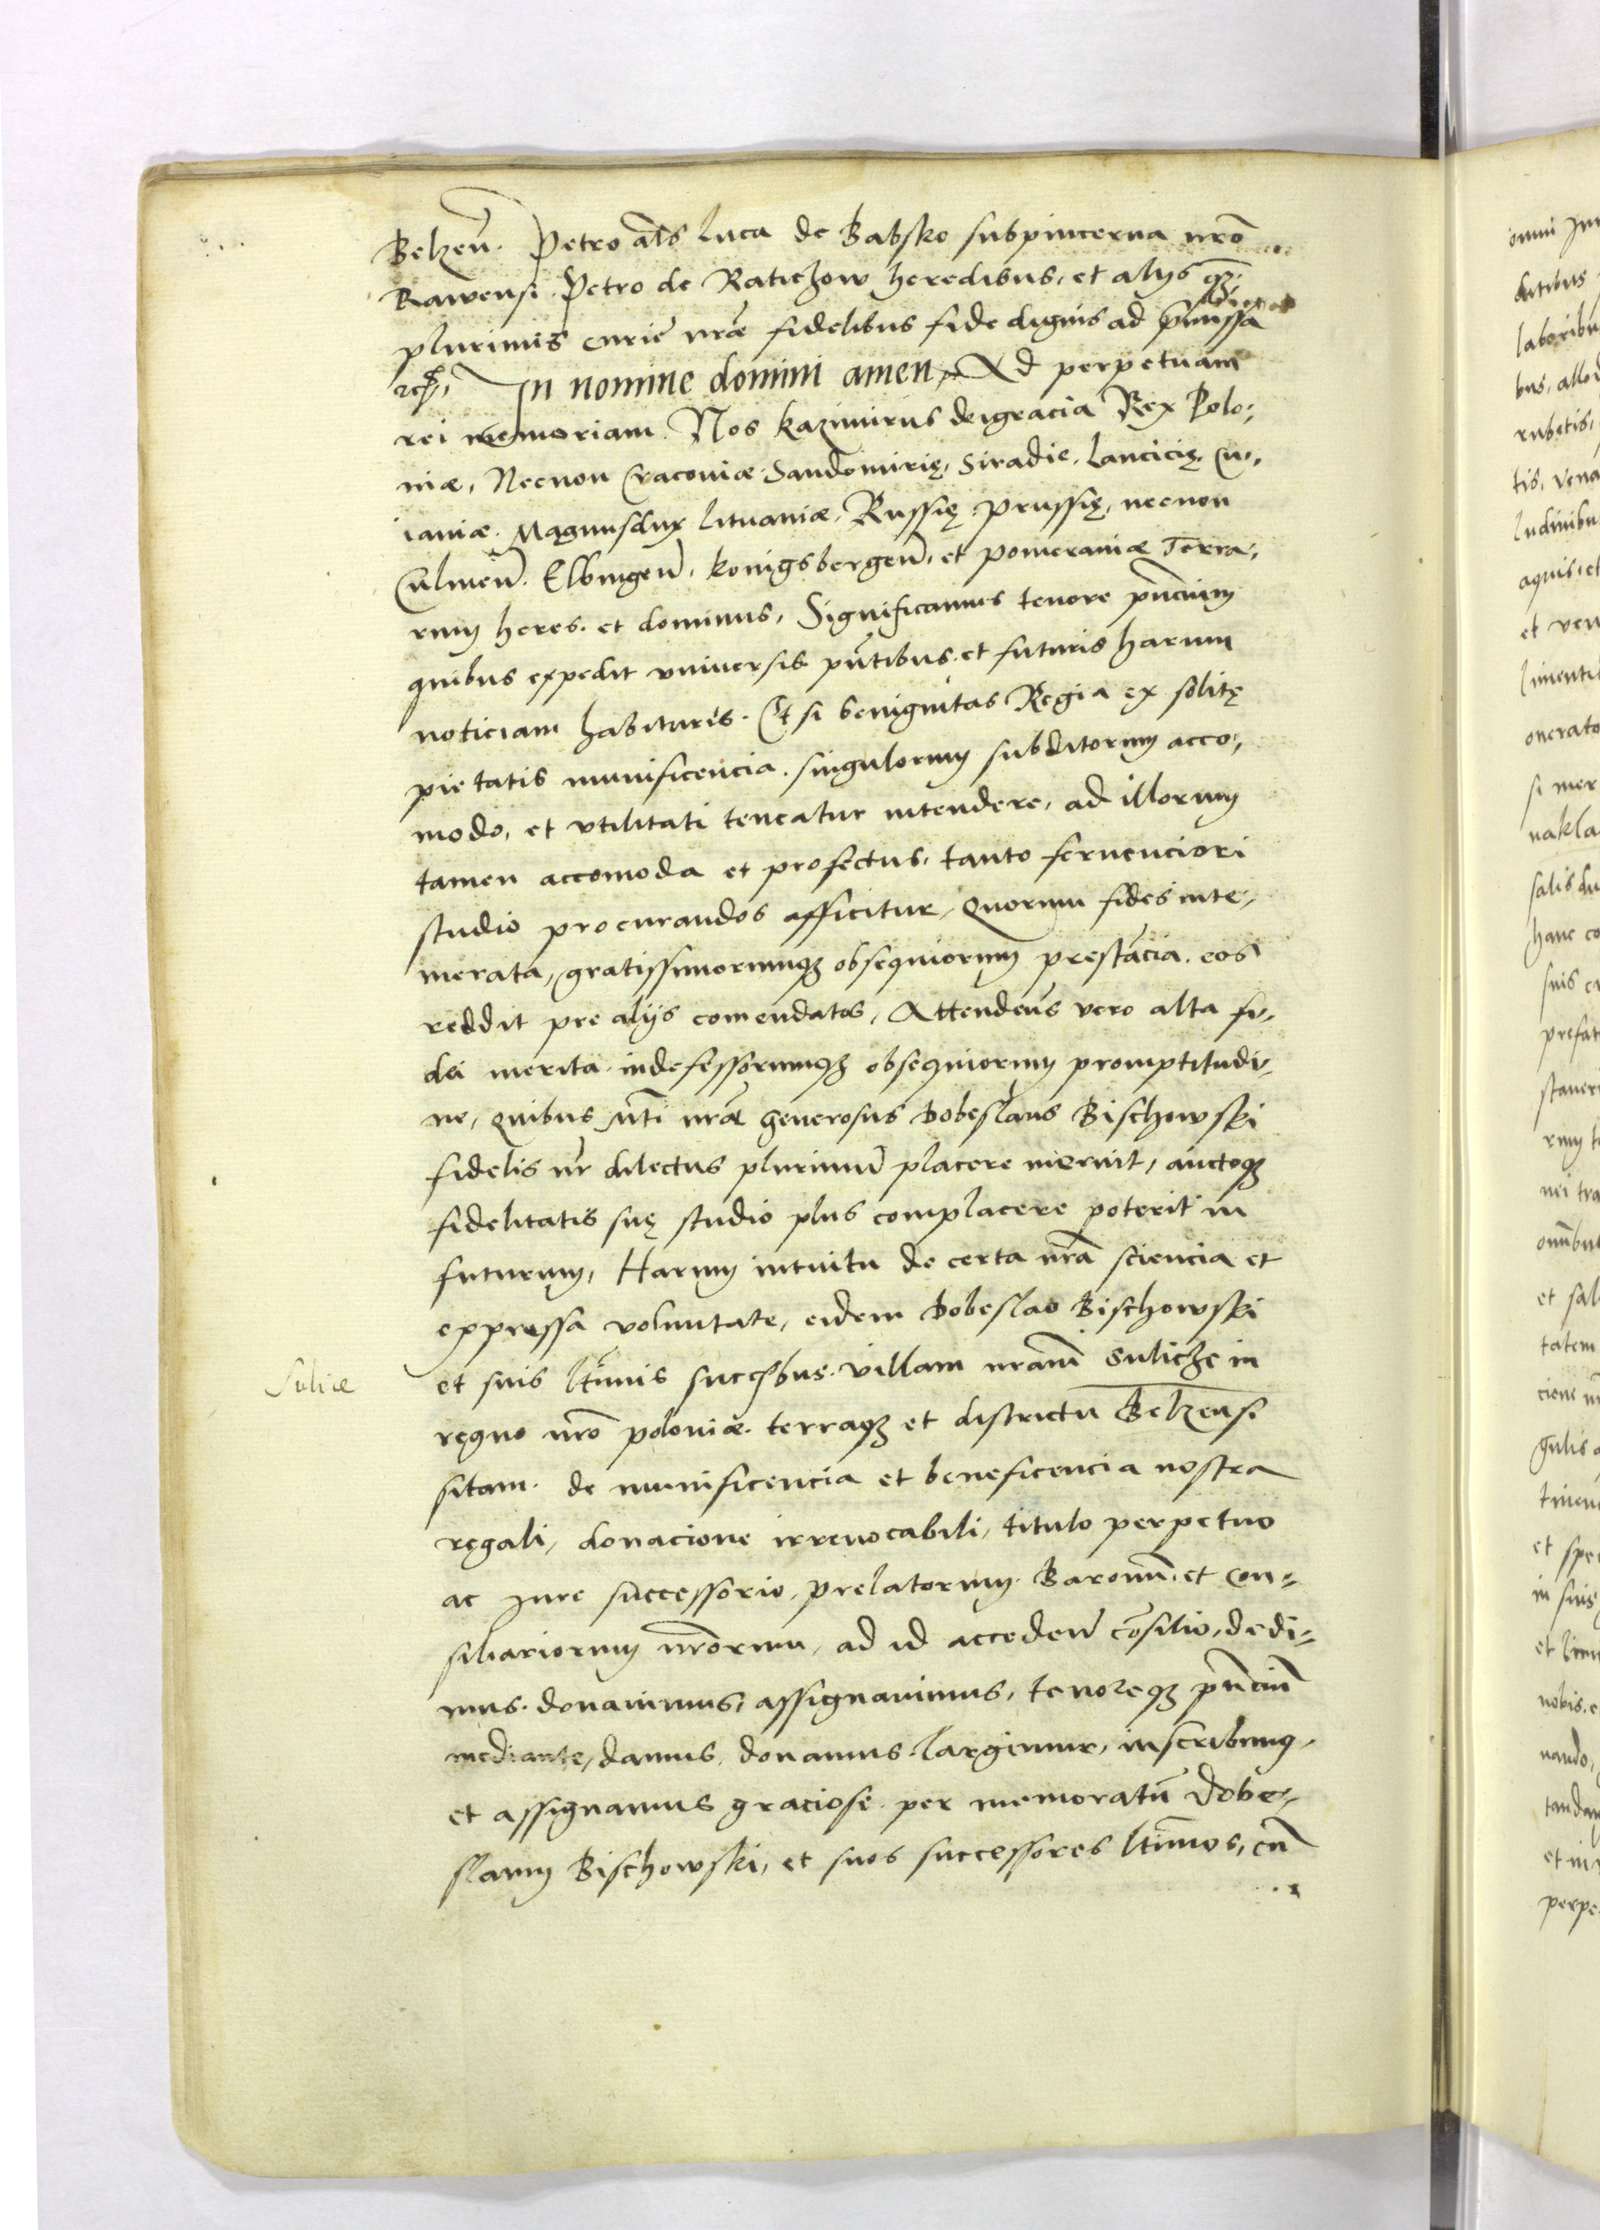 Belzen̄. Petro al̄s Luca de Babsko subpincerna nr̄o
Rawensi. Petro de Ratiehow heredibus, et alijs qz̄
plurimis curie nrāe fidelibus fide dignis ad p̄missa
In nomine domini amen, Ad perpetuam
rei memoriam. Nos Kazimirus dei gracia Rex Polo,
niæ, Necnon Cracoviæ. Sandomirię, Siradie, Lancicię, Cu,
iaviæ. Magnusdux Lituaniæ, Russię prussię, necnon
Culmen̄. Elbingen̄, Konigsbergen̄, et pomeraniæ Terra,
rum heres. et dominus, Significamus tenore pn̄cium
quibus expedit vniversis pn̄tibus. et futuris harum
noticiam habituris. Et si benignitas Regia ex solitę
pietatis munificencia. singulorum subditorum acco,
modo, et vtilitati teneatur intendere, ad illorum
tamen accomoda et profectus, tanto fervenciori
studio procurandos afficitur, quorum fides inte,
merata, gratissimorumqz obsequiorum prestācia. eos
reddit pre alijs comendatos, Attendens vero alta fi,
dei merita. indefessorumqz obsequiorum promptitudi,
ne, quibus m̄ti nrāe generosus Dobeslaus Bischowski
fidelis nr̄ dilectus plurimū placere meruit, auctoqz
fidelitatis suę studio plus complacere poterit in
futurum, Harum intuitu de certa nr̄a sciencia et
expressa voluntate, eidem Dobeslao Bischowski
Sulice
et suis ltīmis succ̄sbus. villam nram̄ Sulicze in
regno nr̄o poloniæ. terraqz et districtu Belzensi
sitam. de munificencia et beneficencia nostra
regali, donacione irrevocabili, titulo perpetuo
ac iure successorio, prelatorum. Baronū. et Con=
siliariorum nr̄orum, ad id acceden̄ cōsilio, dedi=
mus. donavimus, assignavimus, tenoreqz pn̄ciū
mediante, damus, donamus. largimur, inscribimus,
et assignamus graciose. per memoratū Dobe,
slaum Bischowski, et suos successores ltīmos, cū